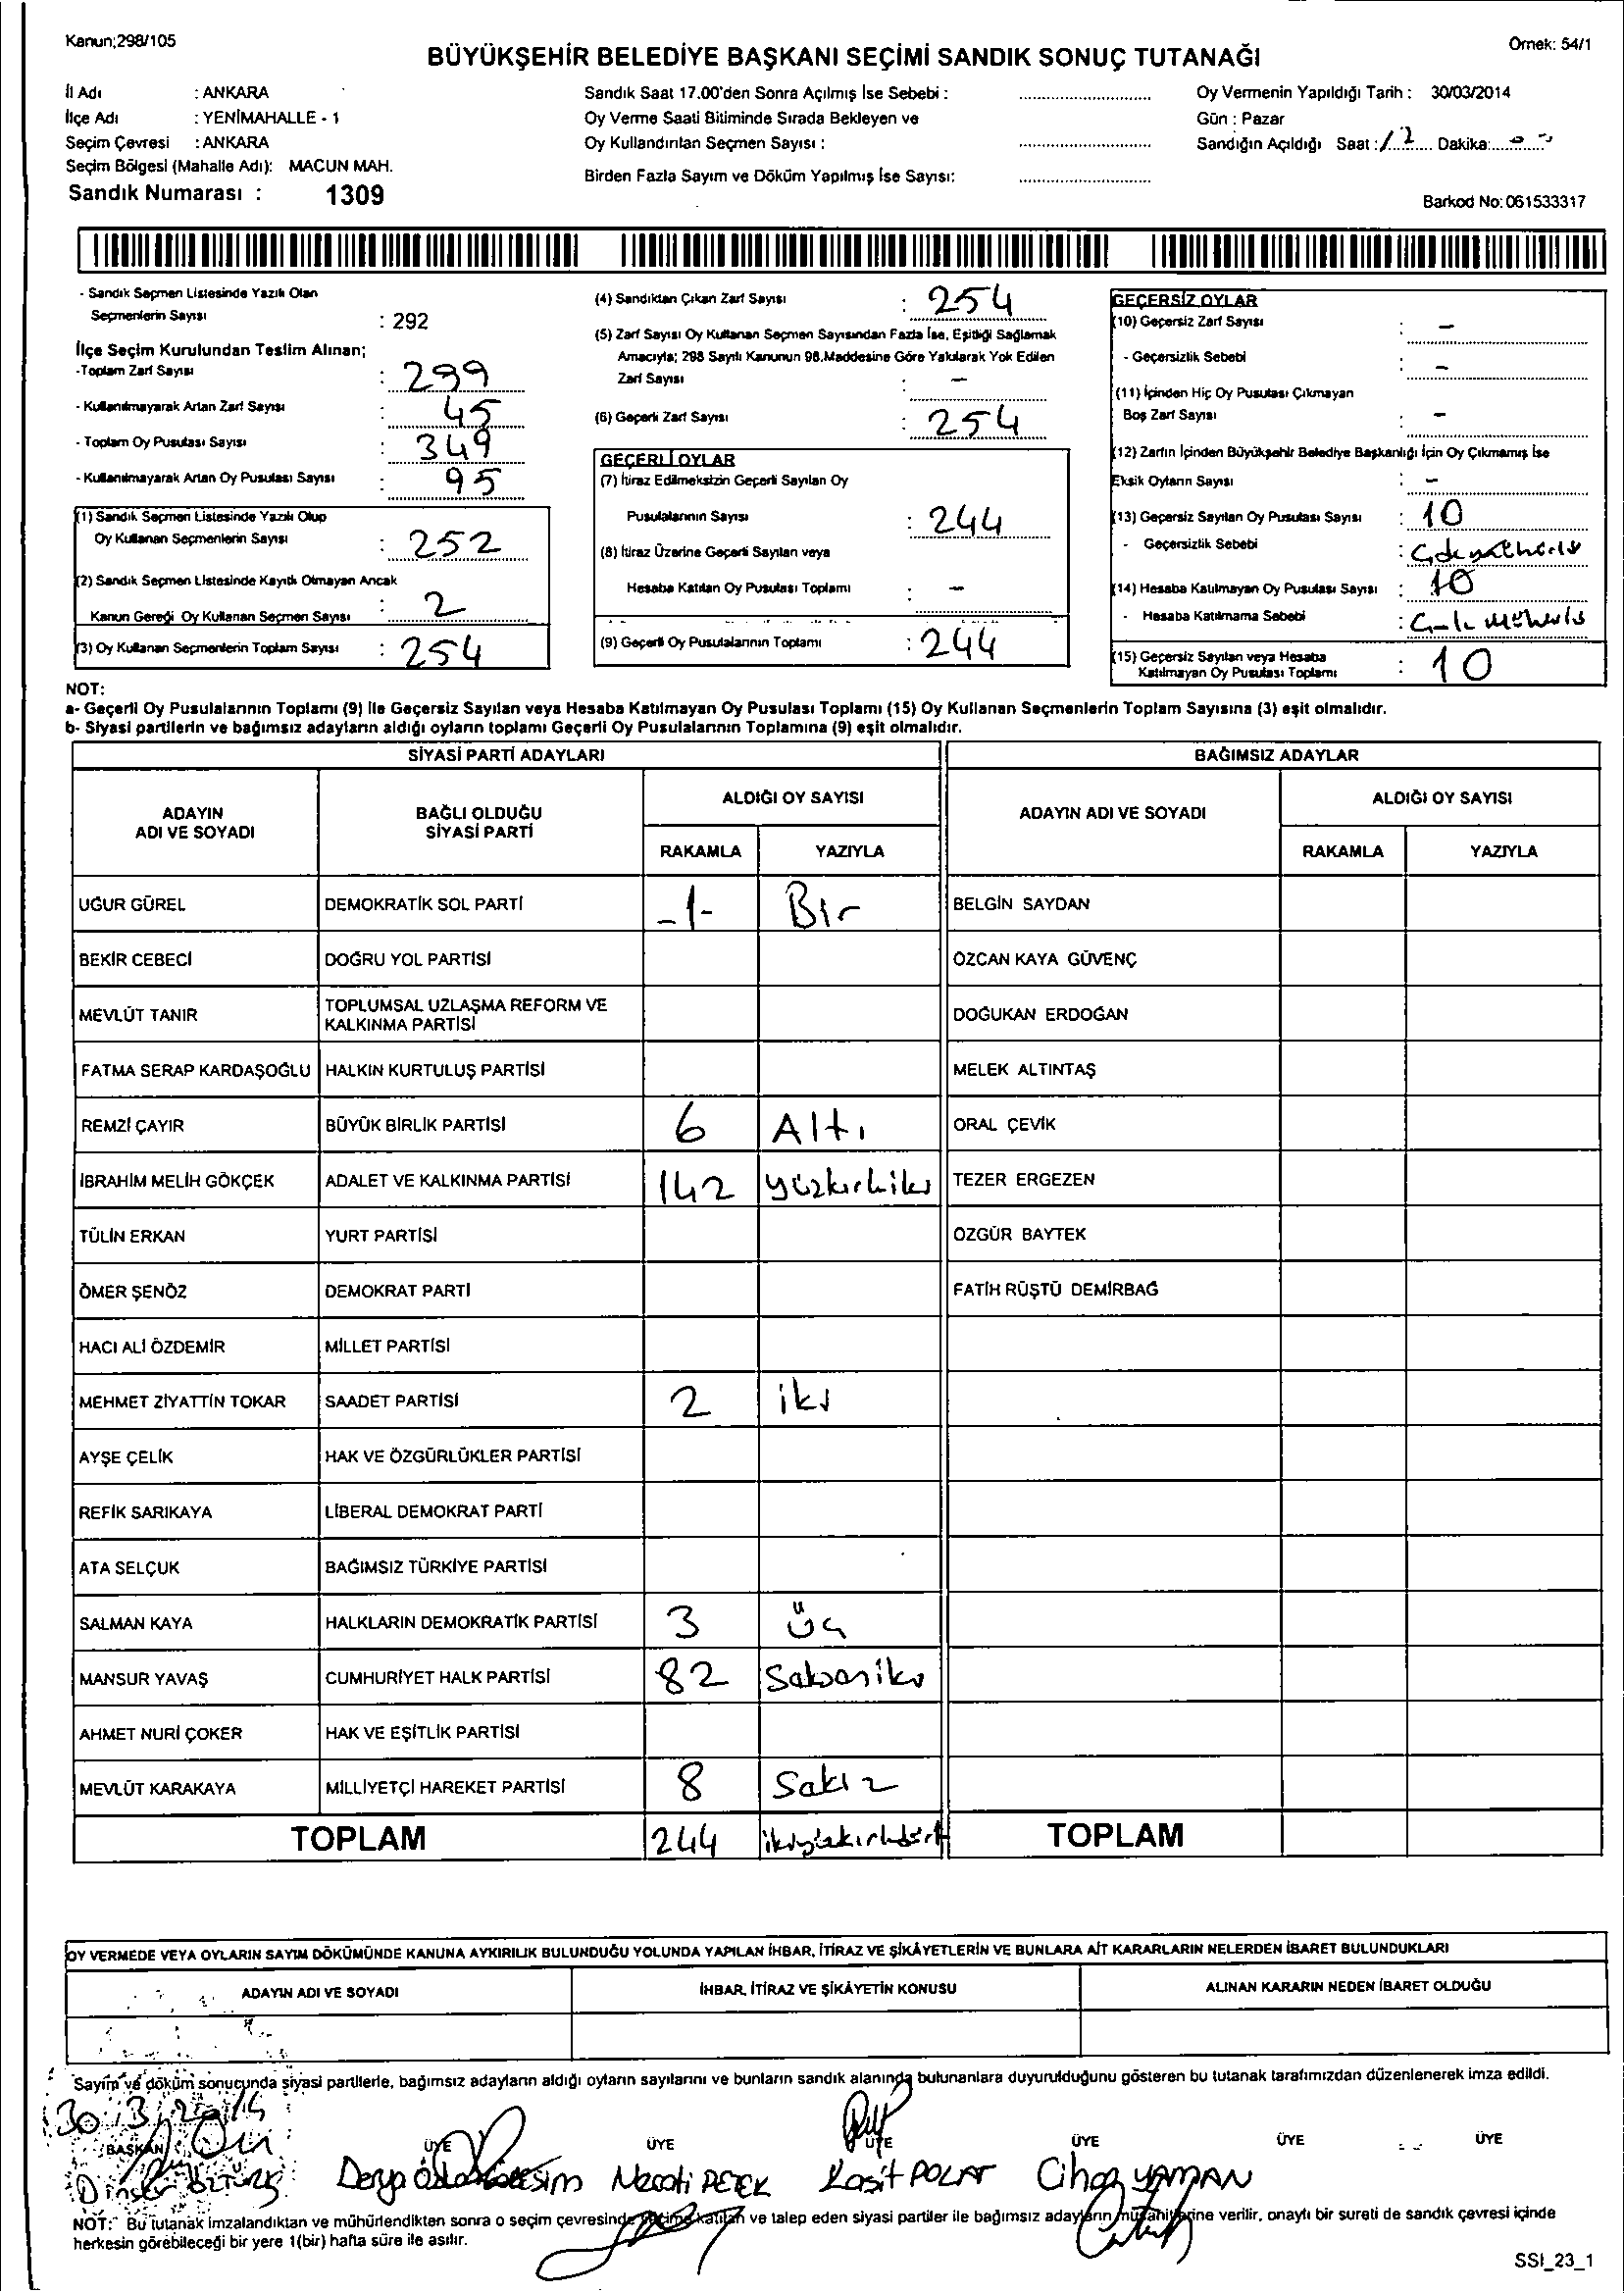 Kanun;298/105
Örnek: 54/1
BÜYÜKŞEHİR BELEDİYE BAŞKANI SEÇİMİ SANDIK SONUÇ TUTANAĞI
İl Adı : ANKARA
İlçe Adı : YENİMAHALLE - 1
Seçim Çevresi : ANKARA
Seçim Bölgesi (Mahalle Adı): MACUN MAH.
Sandık Numarası : 1309
Sandık Saat 17.00'den Sonra Açılmış İse Sebebi :
Oy Verme Saati Bitiminde Sırada Bekleyen ve
Oy Kullandırılan Seçmen Sayısı :
Birden Fazla Sayım ve Döküm Yapılmış İse Sayısı:
Oy Vermenin Yapıldığı Tarih : 30/03/2014
Gün : Pazar
Sandığın Açıldığı Saat : 17 Dakika:
Barkod No: 061533317
- Sandık Seçmen Listesinde Yazılı Olan
Seçmenlerin Sayısı : 292
İlçe Seçim Kurulundan Teslim Alınan;
-Toplam Zarf Sayısı : 299
- Kullanılmayarak Artan Zarf Sayısı : 45
- Toplam Oy Pusulası Sayısı : 349
- Kullanılmayarak Artan Oy Pusulası Sayısı : 95
(1) Sandık Seçmen Listesinde Yazılı Olup
Oy Kullanan Seçmenlerin Sayısı : 252
(2) Sandık Seçmen Listesinde Kayıtlı Olmayan Ancak
Kanun Gereği Oy Kullanan Seçmen Sayısı : 2
(3) Oy Kullanan Seçmenlerin Toplam Sayısı : 254
(4) Sandıktan Çıkan Zarf Sayısı : 254
(5) Zarf Sayısı Oy Kullanan Seçmen Sayısından Fazla İse, Eşitliği Sağlamak
Amacıyla; 298 Sayılı Kanunun 98.Maddesine Göre Yakılarak Yok Edilen
Zarf Sayısı : -
(6) Geçerli Zarf Sayısı : 254
GEÇERLİ OYLAR
(7) İtiraz Edilmeksizin Geçerli Sayılan Oy
Pusulalarının Sayısı : 244
(8) İtiraz Üzerine Geçerli Sayılan veya
Hesaba Katılan Oy Pusulası Toplamı : -
(9) Geçerli Oy Pusulalarının Toplamı : 244
GEÇERSİZ OYLAR
(10) Geçersiz Zarf Sayısı : -
- Geçersizlik Sebebi : -
(11) İçinden Hiç Oy Pusulası Çıkmayan
Boş Zarf Sayısı : -
(12) Zarfın İçinden Büyükşehir Belediye Başkanlığı İçin Oy Çıkmamış İse
Eksik Oyların Sayısı : -
(13) Geçersiz Sayılan Oy Pusulası Sayısı : 10
- Geçersizlik Sebebi :
(14) Hesaba Katılmayan Oy Pusulası Sayısı : 10
- Hesaba Katılmama Sebebi :
(15) Geçersiz Sayılan veya Hesaba
Katılmayan Oy Pusulası Toplamı : 10
NOT:
a- Geçerli Oy Pusulalarının Toplamı (9) İle Geçersiz Sayılan veya Hesaba Katılmayan Oy Pusulası Toplamı (15) Oy Kullanan Seçmenlerin Toplam Sayısına (3) eşit olmalıdır.
b- Siyasi partilerin ve bağımsız adayların aldığı oyların toplamı Geçerli Oy Pusulalarının Toplamına (9) eşit olmalıdır.
SİYASİ PARTİ ADAYLARI BAĞIMSIZ ADAYLAR
ADAYIN ADI VE SOYADI BAĞLI OLDUĞU SİYASİ PARTİ ALDIĞI OY SAYISI ADAYIN ADI VE SOYADI ALDIĞI OY SAYISI
RAKAMLA YAZIYLA RAKAMLA YAZIYLA
UĞUR GÜREL DEMOKRATİK SOL PARTİ -1- Bir BELGİN SAYDAN
BEKİR CEBECİ DOĞRU YOL PARTİSİ ÖZCAN KAYA GÜVENÇ
MEVLÜT TANIR TOPLUMSAL UZLAŞMA REFORM VE KALKINMA PARTİSİ DOĞUKAN ERDOĞAN
FATMA SERAP KARDAŞOĞLU HALKIN KURTULUŞ PARTİSİ MELEK ALTINTAŞ
REMZİ ÇAYIR BÜYÜK BİRLİK PARTİSİ 6 Altı ORAL ÇEVİK
İBRAHİM MELİH GÖKÇEK ADALET VE KALKINMA PARTİSİ 142 yüzkırkiki TEZER ERGEZEN
TÜLİN ERKAN YURT PARTİSİ ÖZGÜR BAYTEK
ÖMER ŞENÖZ DEMOKRAT PARTİ FATİH RÜŞTÜ DEMİRBAĞ
HACI ALİ ÖZDEMİR MİLLET PARTİSİ
MEHMET ZİYATTİN TOKAR SAADET PARTİSİ 2 iki
AYŞE ÇELİK HAK VE ÖZGÜRLÜKLER PARTİSİ
REFİK SARIKAYA LİBERAL DEMOKRAT PARTİ
ATA SELÇUK BAĞIMSIZ TÜRKİYE PARTİSİ
SALMAN KAYA HALKLARIN DEMOKRATİK PARTİSİ 3 Üç
MANSUR YAVAŞ CUMHURİYET HALK PARTİSİ 82 Sekseniki
AHMET NURİ ÇOKER HAK VE EŞİTLİK PARTİSİ
MEVLÜT KARAKAYA MİLLİYETÇİ HAREKET PARTİSİ 8 Sekiz
TOPLAM 244 ikiyüzkırkdört TOPLAM
OY VERMEDE VEYA OYLARIN SAYIM DÖKÜMÜNDE KANUNA AYKIRILIK BULUNDUĞU YOLUNDA YAPILAN İHBAR, İTİRAZ VE ŞİKÂYETLERİN VE BUNLARA AİT KARARLARIN NELERDEN İBARET BULUNDUKLARI
ADAYIN ADI VE SOYADI İHBAR, İTİRAZ VE ŞİKÂYETİN KONUSU ALINAN KARARIN NEDEN İBARET OLDUĞU
Sayım ve döküm sonucunda siyasi partilerle, bağımsız adayların aldığı oyların sayılarını ve bunların sandık alanında bulunanlara duyurulduğunu gösteren bu tutanak tarafımızdan düzenlenerek imza edildi.
30/3/2014
BAŞKAN ÜYE ÜYE ÜYE ÜYE ÜYE ÜYE
Derya Necati PETEK Raşit POLAT Cihan YAMAN
NOT: Bu tutanak imzalandıktan ve mühürlendikten sonra o seçim çevresinde seçime katılan ve talep eden siyasi partiler ile bağımsız adayların müşahitlerine verilir, onaylı bir sureti de sandık çevresi içinde
herkesin görebileceği bir yere 1(bir) hafta süre ile asılır.
SSI_23_1